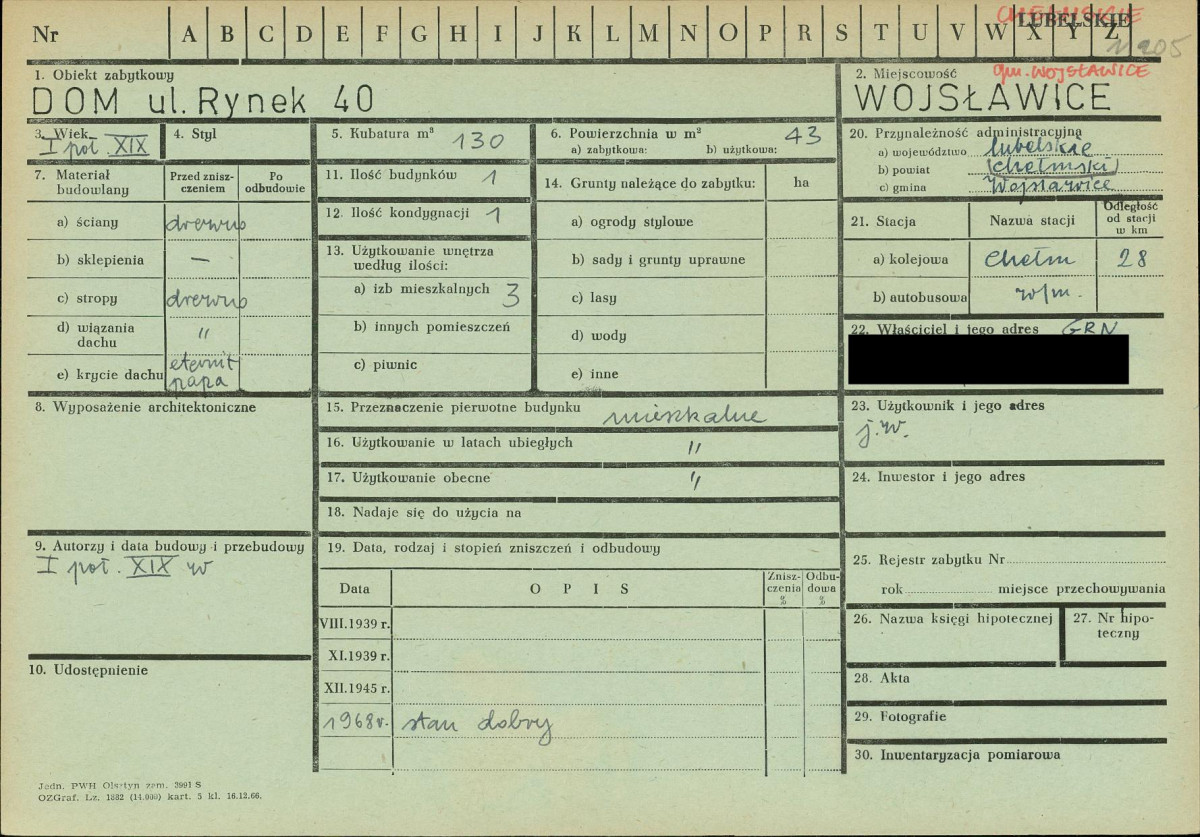 Nr A B C D E F G H I J K L M N O P R S T U V W X Y Z
CHEŁMSKIE
LUBELSKIE
1. Obiekt zabytkowy
DOM ul. Rynek 40
2. Miejscowość
gm. WOJSŁAWICE
WOJSŁAWICE
3. Wiek
I poł. XIX
4. Styl
5. Kubatura m³ 130
6. Powierzchnia w m² 43
a) zabytkowa: b) użytkowa:
7. Materiał budowlany
Przed zniszczeniem
Po odbudowie
a) ściany drewno
b) sklepienia —
c) stropy drewno
d) wiązania dachu "
e) krycie dachu eternit papa
11. Ilość budynków 1
12. Ilość kondygnacji 1
13. Użytkowanie wnętrza
według ilości:
a) izb mieszkalnych 3
b) innych pomieszczeń
c) piwnic
14. Grunty należące do zabytku: ha
a) ogrody stylowe
b) sady i grunty uprawne
c) lasy
d) wody
e) inne
20. Przynależność administracyjna
a) województwo lubelskie
b) powiat (chełmski)
c) gmina Wojsławice
21. Stacja
Nazwa stacji
Odległość od stacji w km
a) kolejowa Chełm 28
b) autobusowa w/m.
22. Właściciel i jego adres GRN
8. Wyposażenie architektoniczne
15. Przeznaczenie pierwotne budynku mieszkalne
16. Użytkowanie w latach ubiegłych "
17. Użytkowanie obecne "
18. Nadaje się do użycia na
23. Użytkownik i jego adres
j.w.
24. Inwestor i jego adres
9. Autorzy i data budowy i przebudowy
I poł. XIX w
10. Udostępnienie
19. Data, rodzaj i stopień zniszczeń i odbudowy
Data
OPIS
Zniszczenia %
Odbudowa %
VIII.1939 r.
XI.1939 r.
XII.1945 r.
1968 r. stan dobry
25. Rejestr zabytku Nr
rok miejsce przechowywania
26. Nazwa księgi hipotecznej
27. Nr hipoteczny
28. Akta
29. Fotografie
30. Inwentaryzacja pomiarowa
Jedn. PWH Olsztyn zam. 3991 S
OZGraf. Lz. 1882 (14.000) kart. 5 kl. 16.12.66.